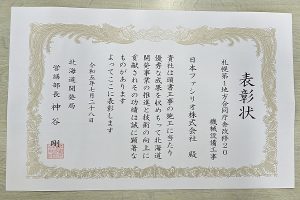 表彰状
札幌第1地方合同庁舎改修20
機械設備工事
日本ファシリオ株式会社 殿
貴社は頭書工事の施工に当たり
優秀な成果を収めもって北海道
開発事業の推進と技術の向上に
貢献されその功績は誠に顕著な
ものがあります
よってここに表彰します
令和五年七月二十八日
北海道開発局
営繕部長 神谷 剛